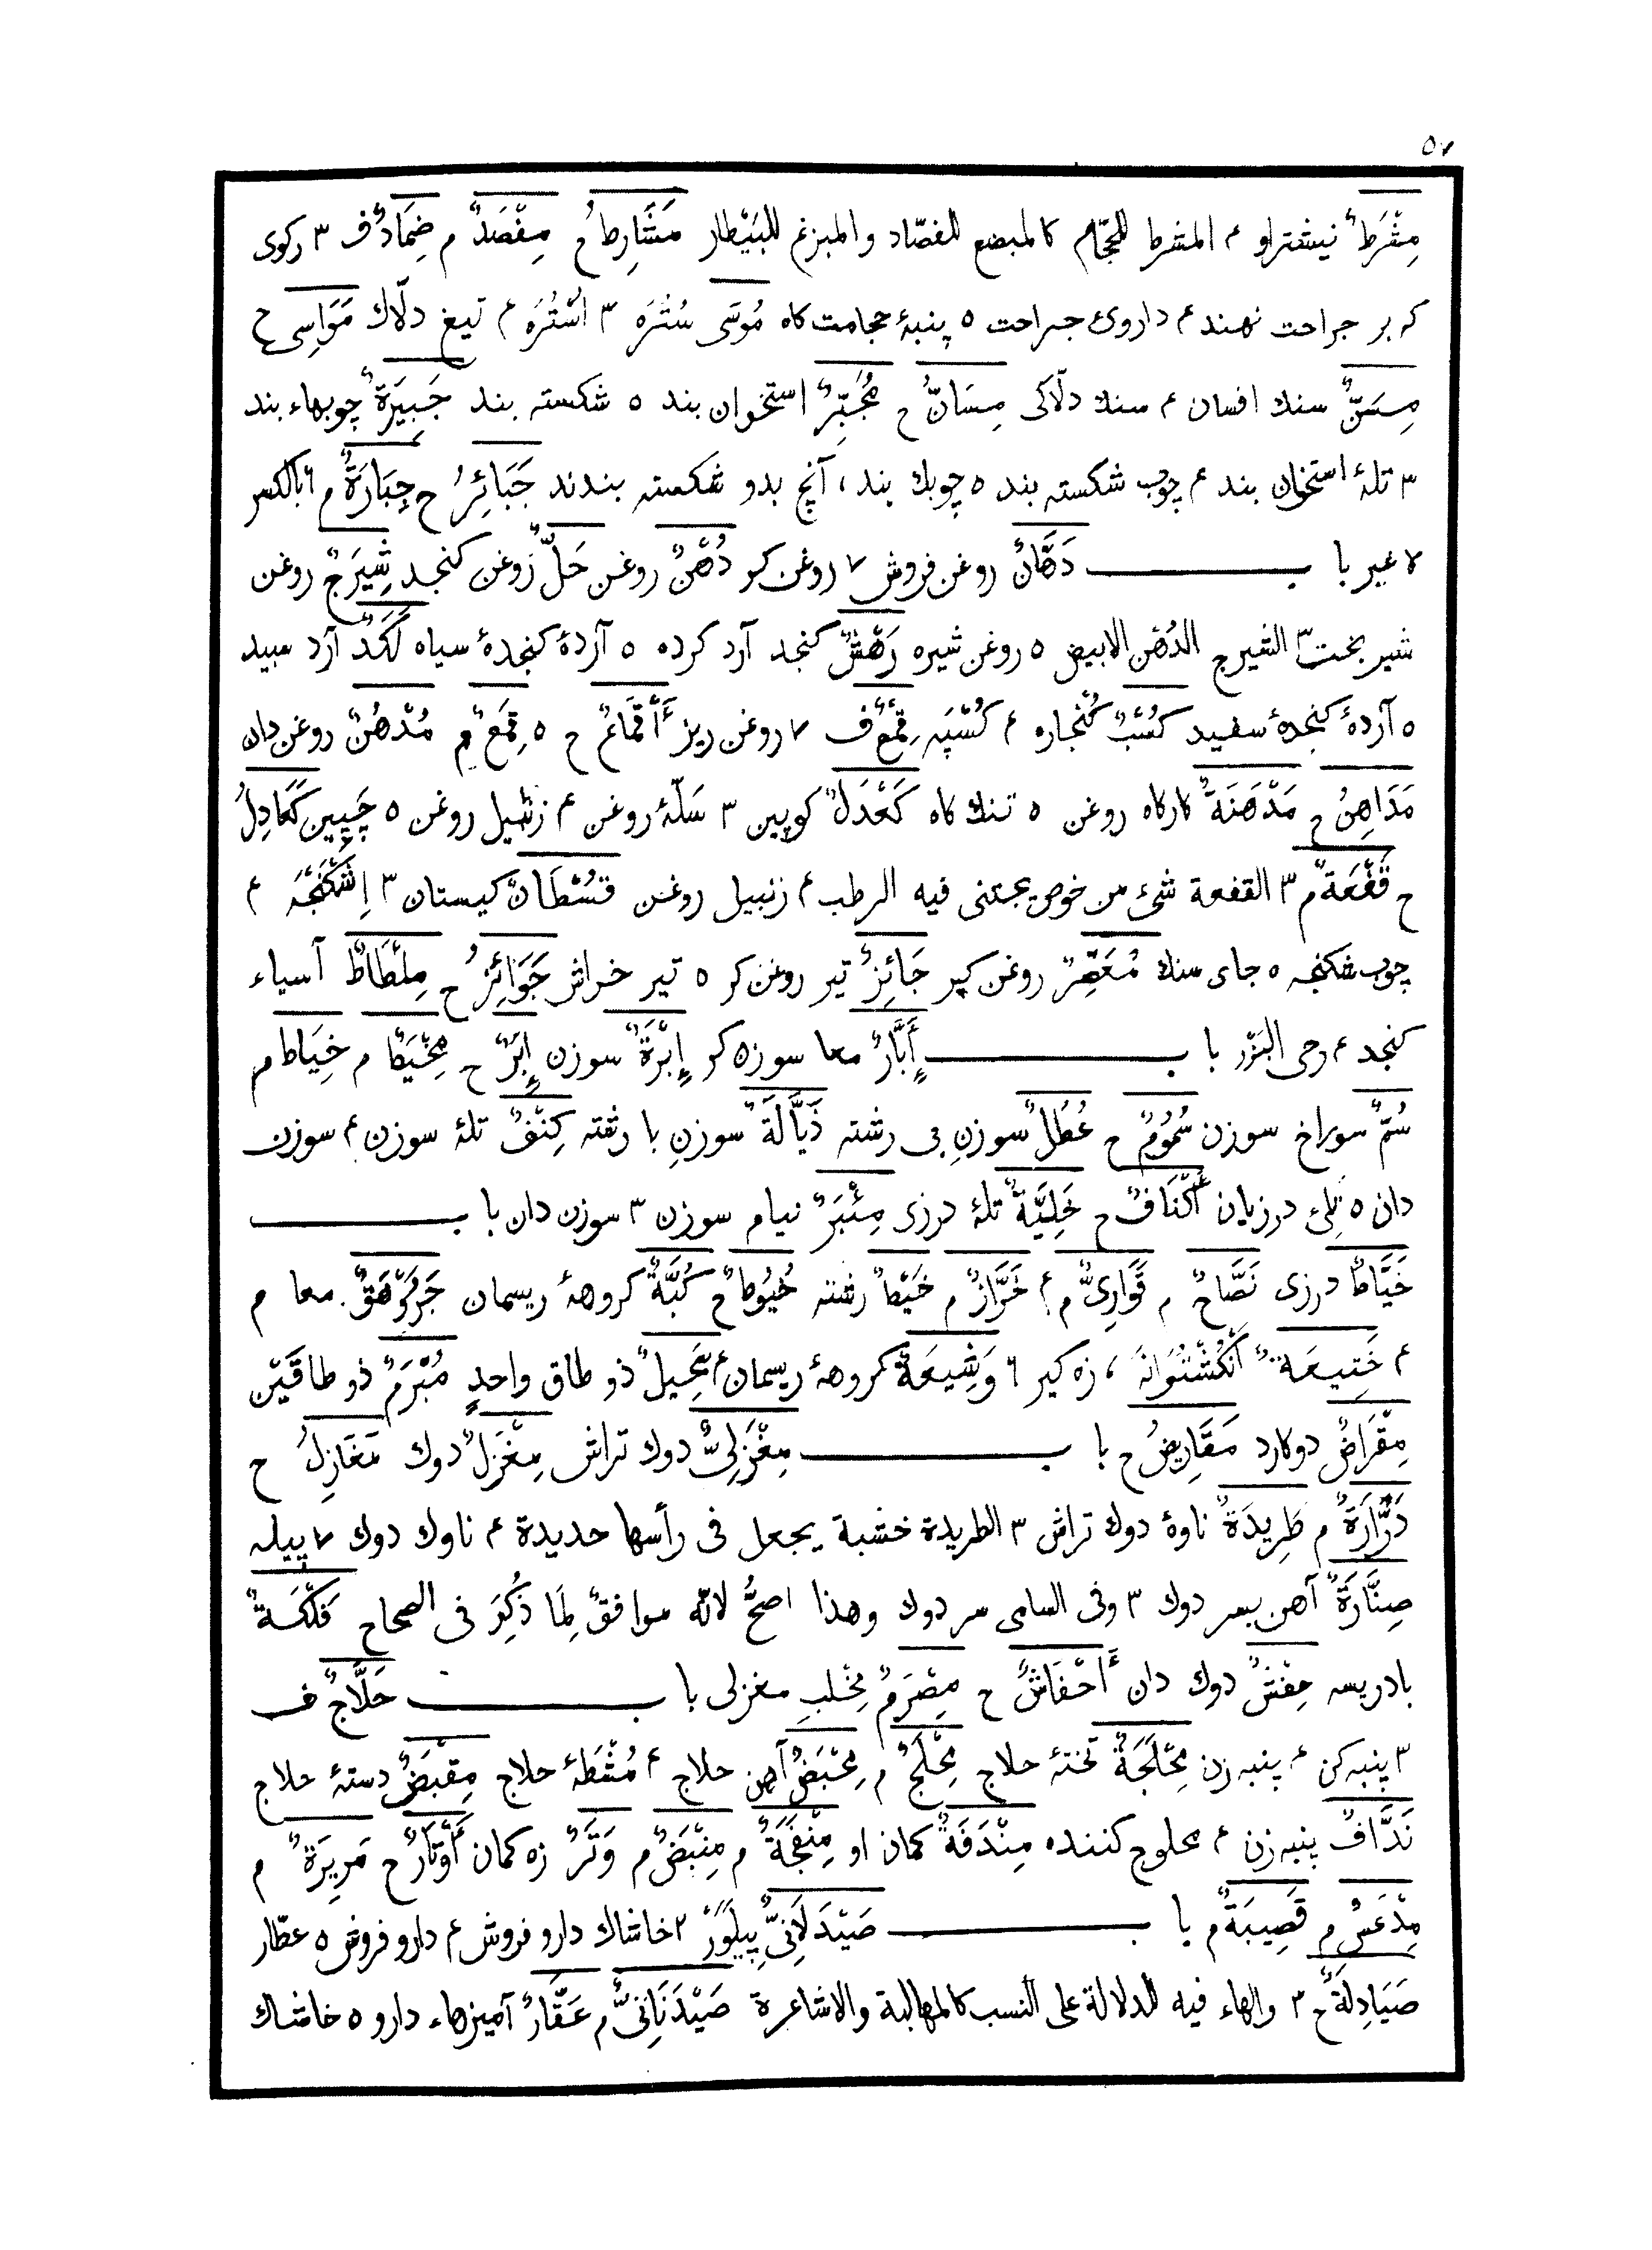 ٥٧
مِشْرَطٌ نیشتر او ۴ المشرط للحجّام کالمبضع للفصّاد والمبزغ للبَیْطار مَشَارِطُ ح مِفْصَدٌ م ضِمَادٌ ف ۳ رکوی
که بر جراحت نهند ۴ داروی جراحت ٥ پنبهٔ حجامت کاه مُوسَی سُتُرَه ۳ اُسْتُرَه ۴ تیغ دلّاك مَوَاسِی ح
مِسَنٌّ سنك افسان ۴ سنك دلّاکی مِسَانٌّ ح مُجَبِّرٌ استخوان بند ٥ شکسته بند جَبِیَرَةٌ چوبهاء بند
۳ تلهٔ استخوان بند ۴ چوب شکسته بند ٥ چوبك بند ، آنچ بدو شکسته بندند جَبَائِرُ ح جِبَارَةٌ م ٦ بالکسر
لا غیر با ب دَهَّانٌ روغن فروش ۷ روغن کر دُهْنٌ روغن حَلٌّ روغن کنجد شِیَرَجٌ روغن
شیر بخت ۳ الشیرج الدُهْن الابیض ٥ روغن شیره رَهْشٌ کنجد آرد کرده ٥ آردهٔ کنجدهٔ سیاه لَکَدٌ آرد سبید
٥ آردهٔ کنجدهٔ سفید کُسْبٌ کُنْجاره ۴ کُسْپَه قِمْعٌ ف ۷ روغن ریز أَقْمَاعٌ ح ٥ قِمَعٌ م مُدْهُنٌ روغن دان
مَدَاهِنُ ح مَدْهَنَةٌ کارکاه روغن ٥ تنك کاه کَعْدَلٌ کوپین ۳ سَلّهٔ روغن ۴ زنبیل روغن ٥ چَپِین کَعَادِلُ
ح قَفْعَةٌ م ۳ القفعة شیء من خوص یجتنی فیه الرطب ۴ زنبیل روغن قُسْطَانٌ کیستان ۳ إِشْکَنْجَه ۴
چوب شکنجه ٥ جای سنك مُعَصِّرٌ روغن کیر جَائِزٌ تیر روغن کر ٥ تیر خراش جَوَائِزُ ح مِلْطَاطٌ آسیاء
کنجد ۴ رحی البَزْر با ب أَبَّارٌ معا سوزه کر إِبْرَةٌ سوزن إِبَرٌ ح مِخْیَطٌ م خِیَاط م
سُمٌّ سوراخ سوزن سُمُومٌ ح عُطُلٌ سوزنِ بی رشته ذَیَّالَةٌ سوزنِ با رشته کِنْفٌ تلهٔ سوزن ۴ سوزن
دان ٥ تلیء درزیان أَکْنَافٌ ح خَلِیَّةٌ تلهٔ درزی مِئْبَرٌ نیام سوزن ۳ سوزن دان با ب
خَیَّاطٌ درزی نَصَّاحٌ م قَوَارِیٌّ م ۴ خَرَّازٌ م خَیْطٌ رشته خُیُوطٌ ح کُبَّةٌ کروههٔ ریسمان جَرَوْهَقٌ معا م
۴ خَتِیعَةٌ أَنْکُشْتُوَانَه ، زه کیر ٦ وَشِیعَةٌ کروههٔ ریسمان ۴ سَحِیلٌ ذو طاق واحدٍ مُبْرَمٌ ذو طاقَیْن
مِقْرَاضٌ دوکارد مَقَارِیضُ ح با ب مِغْزَلِیٌّ دوك تراش مِغْزَلٌ دوك مَغَازِلُ ح
دَرَّارَةٌ م طَرِیدَةٌ ناوهٔ دوك تراش ۳ الطریدة خشبة یجعل فی رأسها حدیدة ۴ ناوك دوك ۷ پیله
صِنَّارَةٌ آهن بسر دوك ۳ وفی السامی سر دوك وهذا اصحُّ لانّه موافقٌ لِمَا ذُکِرَ فی الصحاح فَلْکَةٌ
بادریسه حِفْشٌ دوك دان أَحْفَاشٌ ح مِصْرَمٌ مِخْلبِ مغزلی با ب حَلَّاجٌ ف
۳ پنبه کن ۴ پنبه زن مِحْلَجَةٌ تختهٔ حلاج مِحْلَجٌ م مِحْبَضٌ آهن حلاج ۴ مُشْطَهٔ حلاج مِقْبَضٌ دستهٔ حلاج
نَدَّافٌ پنبه زن ۴ محلوج کننده مِنْدَفَةٌ کمان او مِنْفَجَةٌ م مِنْبَضٌ م وَتَرٌ زه کمان أَوْتَارٌ ح مَرِیَرةٌ م
مِدْعَسٌ م قَصِیبَةٌ م با ب صَیْدَلَانِیٌّ پِیلَوَرْ ۲ خاشاك دارو فروش ۴ دارو فروش ٥ عطّار
صَیَادِلَةٌ ح ۳ والهاء فیه للدلالة علی النسب کالمهالبة والاشاعرة صَیْدَنَانِیٌّ م عَقَّارٌ آمیزهاء دارو ٥ خاشاك